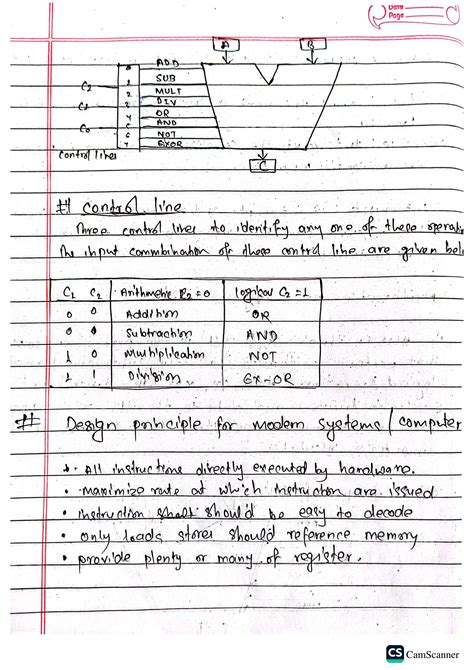 Date
Page
A B
0 ADD
C2 1 SUB
2 MULT
C1 3 DIV
4 OR
C0 5 AND
6 NOT
7 EXOR
Control lines
C
# Control line
Three control lines to identify any one of these operati
The input commbination of these control line are given bel
C1 C2 Arithmetic C2=0 logical C2=1
0 0 Addition OR
0 0 Subtraction AND
1 0 Multiplication NOT
1 1 Division Ex-OR
# Design principle for modern systems / computer
• All instructions directly executed by hardware.
• maximize rate at which instruction are issued
• instruction should be easy to decode
• only loads, stores should reference memory
• provide plenty or many of register.
CS CamScanner